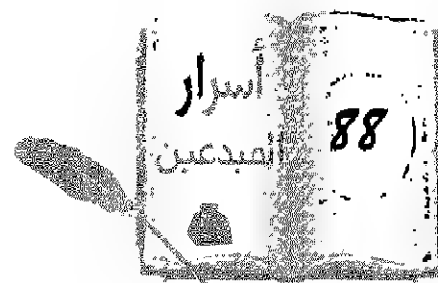 أسرار
المبدعين
88